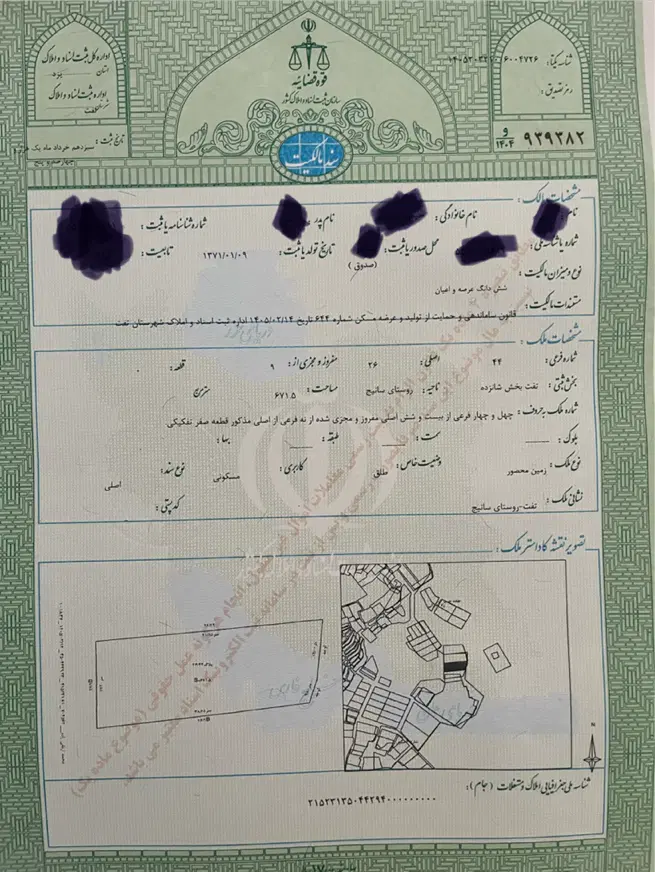 قوه قضائیه
سازمان ثبت اسناد و املاک کشور
سند مالکیت
اداره کل ثبت اسناد و املاک
استان یزد
اداره ثبت اسناد و املاک
تفت
تاریخ ثبت : سیزدهم خرداد ماه یک هزار و
چهارصد و پنج
شناسه یکتا :
رمز تصدیق :
و
۱۴۰۴
۹۳۹۳۸۲
مشخصات مالک :
نام خانوادگی : نام پدر : شماره شناسنامه یا ثبت :
شماره یا شناسه ملی : محل صدور یا ثبت : تاریخ تولد یا ثبت : ۱۳۷۱/۰۱/۰۹ تابعیت :
(صدوق)
نوع و میزان مالکیت :
شش دانگ عرصه و اعیان
مستندات مالکیت :
قانون ساماندهی و حمایت از تولید و عرضه مسکن شماره ۶۴۴ تاریخ ۱۴۰۵/۰۲/۱۴ اداره ثبت اسناد و املاک شهرستان تفت
مشخصات ملک :
شماره فرعی : ۴۴ اصلی : ۲۶ مفروز و مجزی از : ۹ قطعه :
بخش ثبتی : تفت بخش شانزده ناحیه : روستای سانیج مساحت : ۶۷۱.۵ مترمربع
شماره ملک به حروف : چهل و چهار فرعی از بیست و شش اصلی مفروز و مجزی شده از نه فرعی از اصلی مذکور قطعه صفر تفکیکی
بلوک : سمت : طبقه : بها :
نوع ملک : زمین محصور وضعیت خاص : طلق کاربری : مسکونی نوع سند : اصلی
نشانی ملک : تفت-روستای سانیج کد پستی :
تصویر نقشه کاداستر ملک :
N
شناسه ملی جغرافیایی املاک و مستغلات (جام) :
۲۱۵۲۳۱۳۵۰۴۴۲۹۴۰۰۰۰۰۰۰۰۰